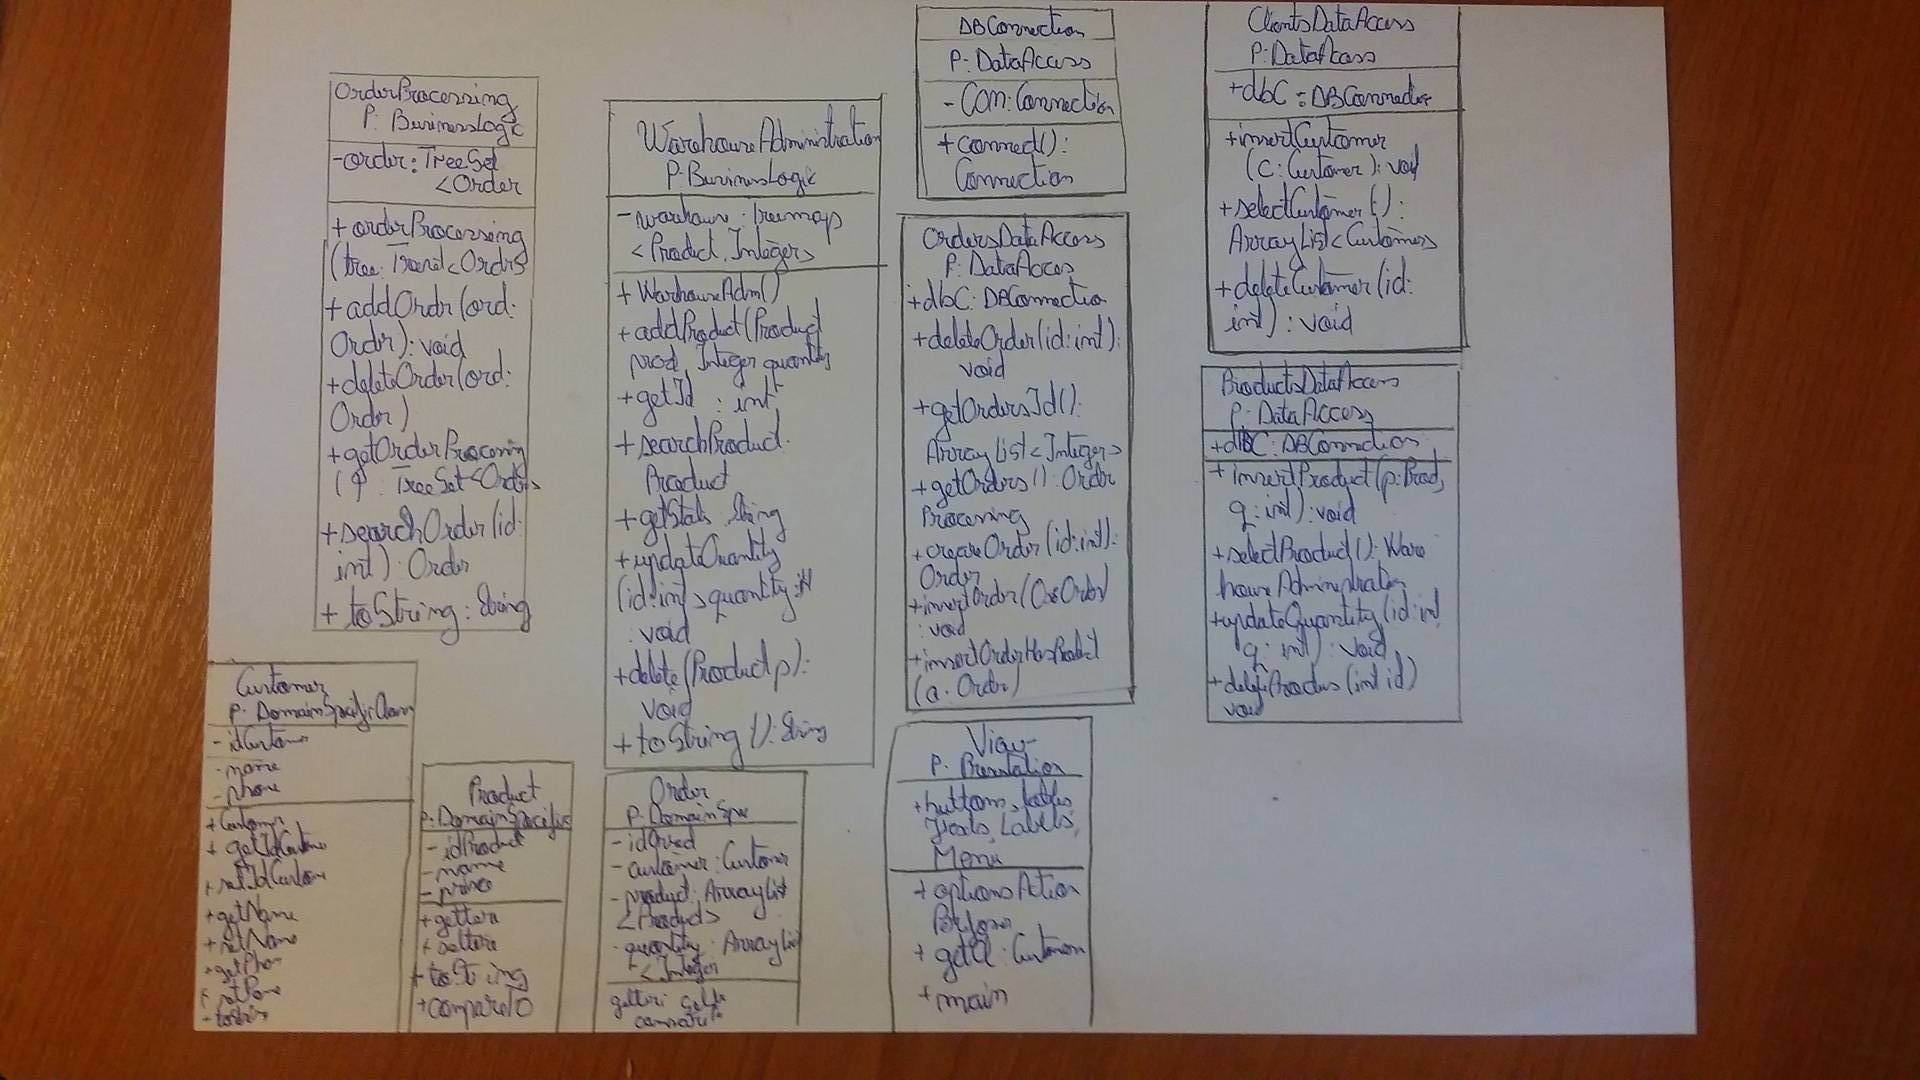 OrderProcessing
P: BusinessLogic
-order: TreeSet
<Order
+ orderProcessing
(tree: Treeset<Order>
+ addOrdr(ord:
Ordr): void
+deleteOrder(ord:
Order)
+getOrderProcessing
() : TreeSet<Order>
+searchOrder(id:
int): Order
+ toString: String
WarehouseAdministration
P: BusinessLogic
- warehouse: treemap
<Product, Integer>
+ WarhouseAdm()
+ addProduct(Product
prod, Integer quantity
+getId : int
+searchProduct:
Product
+getStats: String
+updateQuantity
(id:int, quantity:int
: void
+delete(Product p):
void
+ toString (): String
DBConnection
P: DataAccess
- Con: Connection
+ connect():
Connection
OrdersDataAccess
P: DataAcces
+dbC: DBConnection
+deleteOrder(id:int):
void
+getOrdersId():
ArrayList<Integer>
+getOrders(): Order
Processing
+createOrder(id:int):
Order
+insertOrder(Order)
: void
+insertOrderHasProduct
(a: Order)
ClientsDataAccess
P: DataAccess
+dbC: DBConnection
+insertCustomer
(c: Customer): void
+selectCustomer():
ArrayList<Customer>
+deleteCustomer(id:
int): void
ProductsDataAccess
P: DataAccess
+dbC: DBConnection
+insertProduct(p:Prod,
q: int): void
+selectProduct(): Ware
houseAdministration
+updateQuantity(id:int
q: int): void
+deleteProdus(int id)
void
Customer
P: DomainSpecificClasses
- idCustomer
- name
- phone
+ Customer
+ getIdCustomer
+ setIdCustomer
+getName
+setName
+getPhone
+setPhone
- toString
Product
P: DomainSpecific
- idProduct
- name
- price
+ getteri
+ setteri
+toString
+compareTo
Order
P: DomainSpec
- idOrder
- customer: Customer
- product: ArrayList
<Product>
- quantity: ArrayList
<Integer
getteri
compareTo
View
P: Presentation
+buttons, tables,
Texts, Labels,
Menu
+ optionsAction
Performer
+ getCl: Customer
+ main